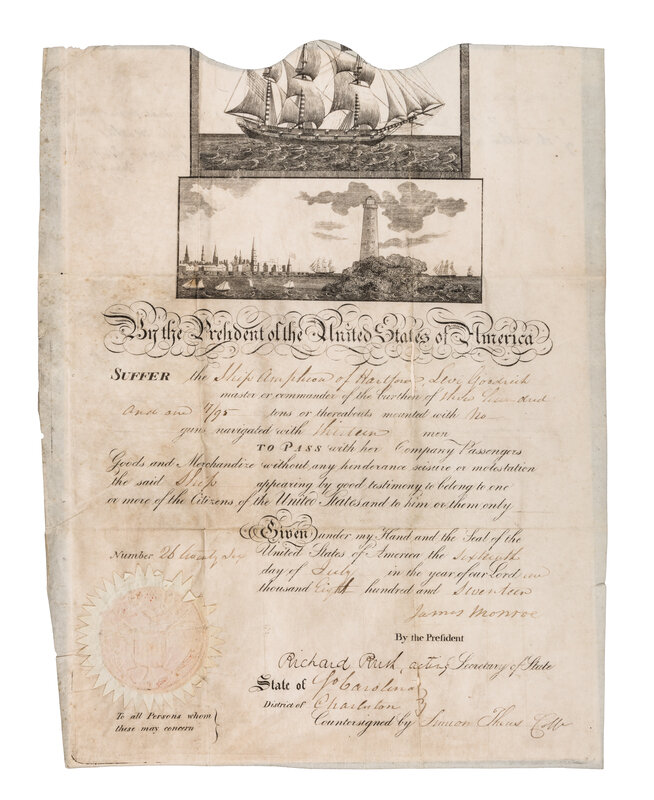 By the President of the United States of America
SUFFER the Ship Amphion of Hartford, Levi Goodrich
master or commander of the burthen of three hundred
And one 7/95 tons or thereabouts mounted with No
guns navigated with thirteen men
TO PASS with her Company Passengers
Goods and Merchandize without any hinderance seisure or molestation
the said Ship appearing by good testimony to belong to one
or more of the Citizens of the United States and to him or them only
Given under my Hand and the Seal of the
Number 26 twenty six United States of America the
day of July in the year of our Lord one
thousand Eight hundred and Seventeen
James Monroe
By the President
Richard Rush, acting Secretary of State
State of So Carolina
District of Charleston
To all Persons whom
these may concern
Countersigned by Simeon Theus Collr